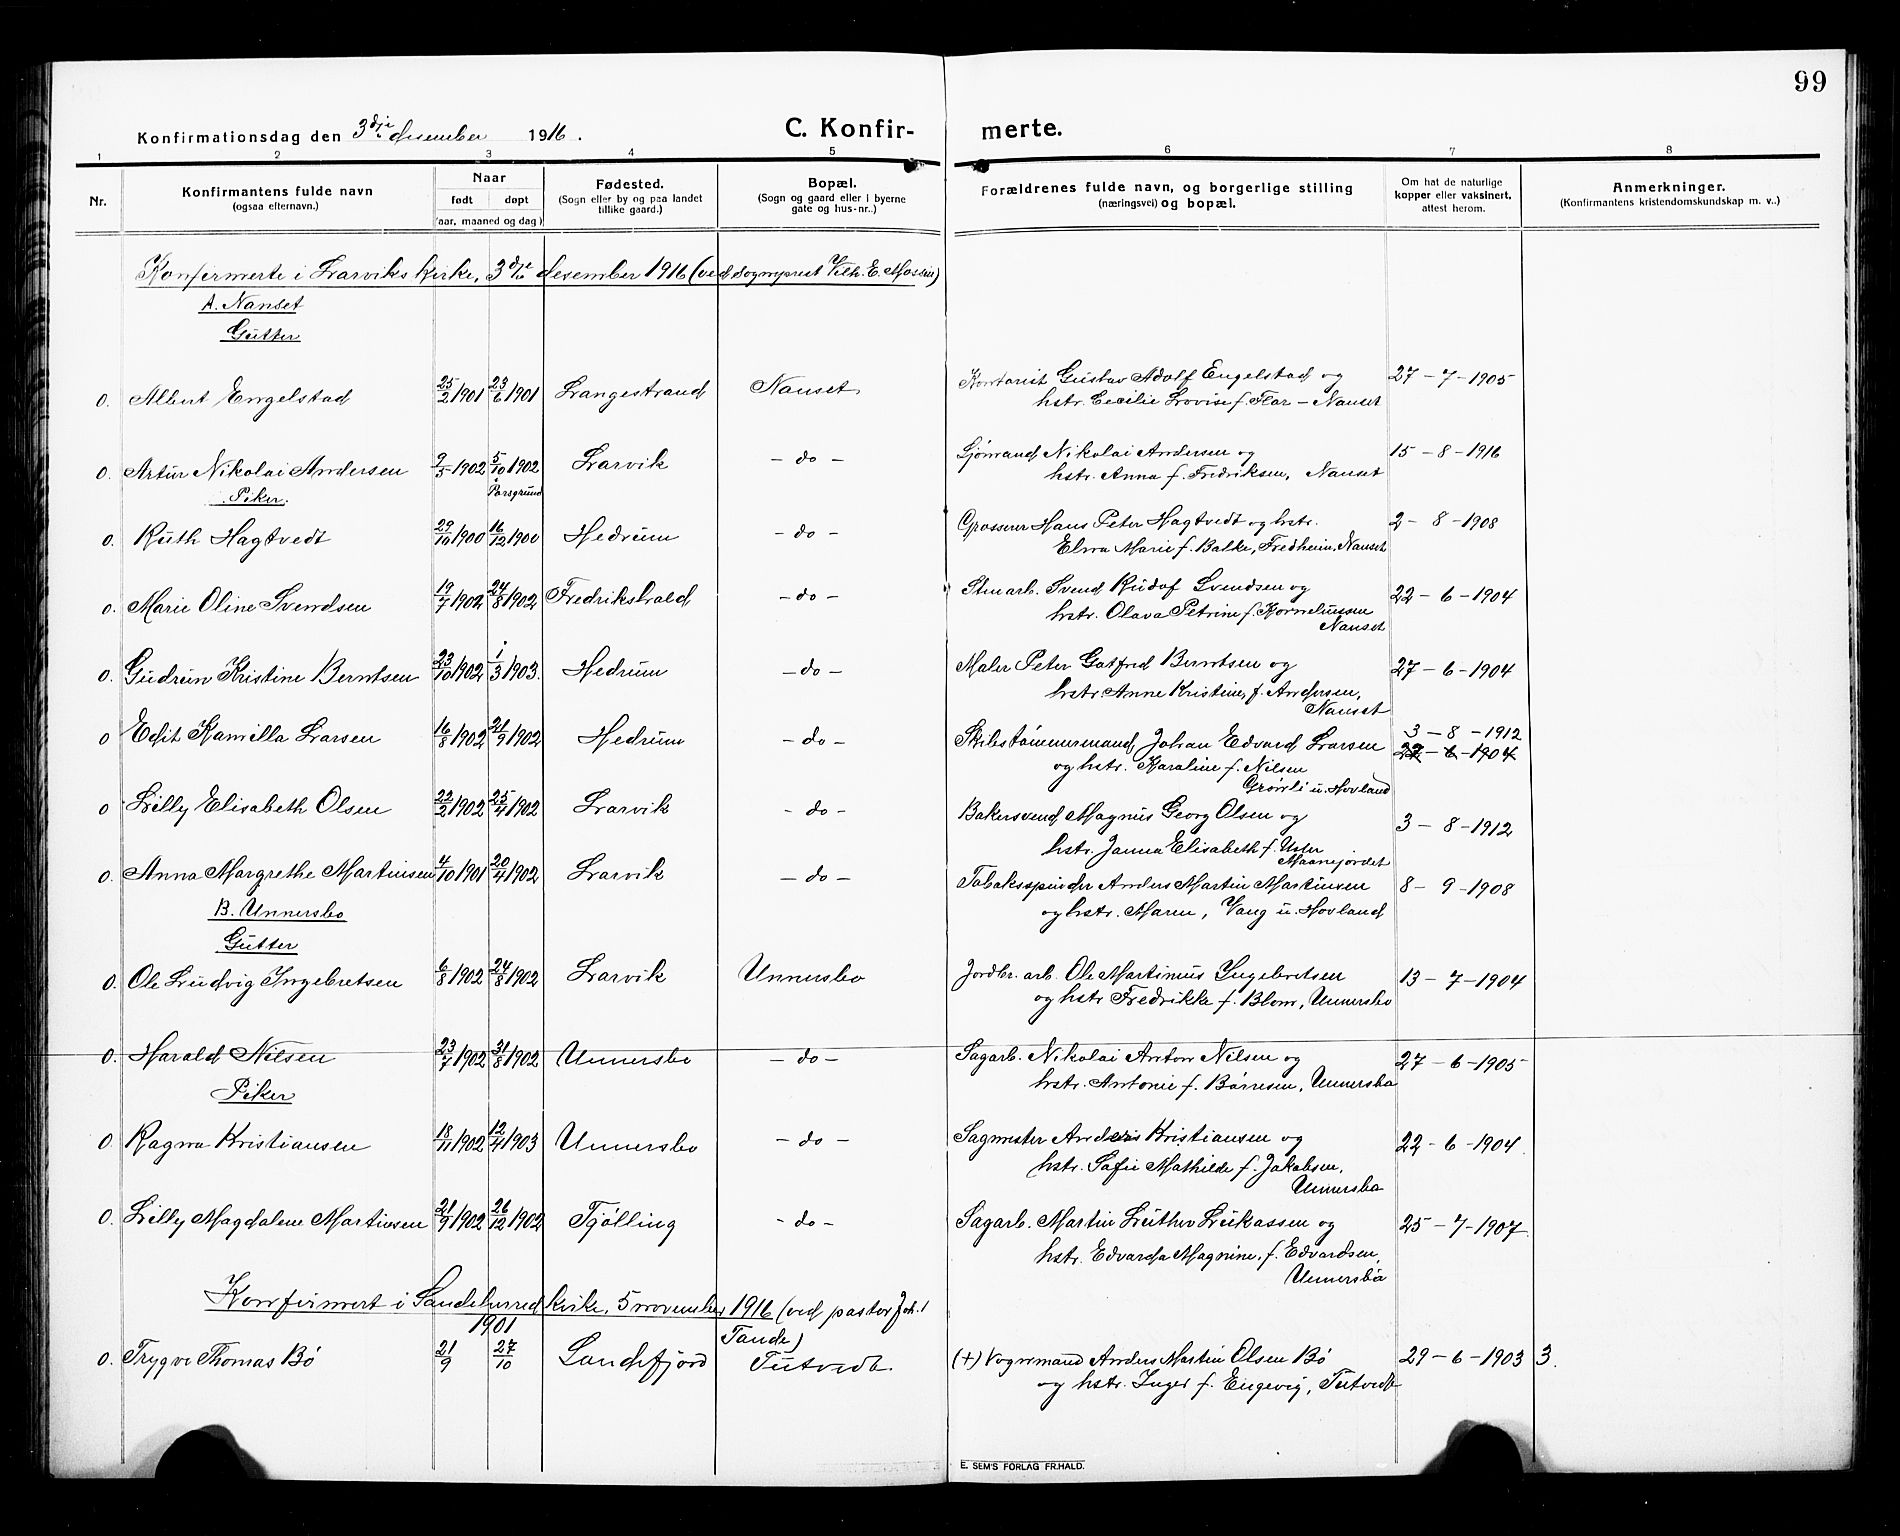 99
Konfirmationsdag den 3dje desember 1916.
C. Konfir-merte.
1 2 3 4 5 6 7 8
Nr.
Konfirmantens fulde navn
(ogsaa efternavn.)
Naar
født døpt
(aar, maaned og dag)
Fødested.
(Sogn eller by og paa landet
tillike gaard.)
Bopæl.
(Sogn og gaard eller i byerne
gate og hus-nr..)
Forældrenes fulde navn, og borgerlige stilling
(næringsvei) og bopæl.
Om hat de naturlige
kopper eller vaksinert,
attest herom.
Anmerkninger.
(Konfirmantens kristendomskundskap m. v..)
Konfirmerte i Larviks kirke, 3dje desember 1916 (ved sogneprest Vilh. E. Møssin)
A. Nanset
Gutter
0. Albert Engelstad 25/2 1901 23/6 1901 Langestrand Nanset Kontorist Gustav Adolf Engelstad og 27-7-1905
hstr. Cecilie Lovise f. Flor - Nanset
0. Artur Nikolai Andersen 9/5 1902 5/10 1902 Larvik - do - Sjømand Nikolai Andersen og 15-8-1916
hstr. Anna f. Fredriksen, Nanset
Piker. i Porsgrund
0. Ruth Hagtvedt 29/10 1900 16/12 1900 Hedrum - do - Grosserer Hans Peter Hagtvedt og hstr. 2-8-1908
Elna Marie f. Balke, Fredheim, Nanset
0. Marie Oline Svendsen 19/7 1902 24/8 1902 Fredrikshald - do - Stenarb. Svend Rudof Svendsen og 22-6-1904
hstr. Olava Petrine f. Korneliussen
Nanset
0. Gudrun Kristine Berntsen 23/10 1902 1/3 1903. Hedrum - do - Maler Peter Gotfred Berntsen og 27-6-1904
hstr. Anne Kristine, f. Andersen,
Nanset
0 Edit Kamilla Larsen 16/8 1902 21/9 1902 Hedrum - do - Skibstømmermand Johan Edvard Larsen 3-8-1912
22-6-1904
og hstr. Karoline f. Nilsen
Grønli u. Hovland
0 Lilly Elisabeth Olsen 22/2 1902 25/4 1902 Larvik - do - Bakersvend Magnus Georg Olsen og 3-8-1912
hstr. Janna Elisabeth f. Uster
Maanejordet
0. Anna Margrethe Martinsen 4/10 1901 20/4 1902 Larvik - do - Tobaksspinder Anders Martin Martinsen 8-9-1908
og hstr. Maren, Vang u. Hovland
B. Unnersbo
Gutter
0. Ole Ludvig Ingebretsen 6/8 1902 24/8 1902 Larvik Unnersbo Jordbr. arb. Ole Martinius Ingebretsen 13-7-1904
og hstr Fredrikke f. Blom, Unnersbo
0. Harald Nilsen 23/7 1902 31/8 1902 Unnersbo - do - Sagarb. Nikolai Anton Nilsen og 27-6-1905
hstr. Antonie f. Børresen, Unnersbo
Piker
0 Ragna Kristiansen 18/11 1902 12/4 1903 Unnersbo - do - Sagmester Anders Kristiansen og 22-6-1904.
hstr. Sofie Mathilde f. Jakobsen,
Unnersbo
0. Lilly Magdalene Martinsen 21/9 1902 26/12 1902 Tjølling - do - Sagarb. Martin Luther Lukassen og 25-7-1907.
hstr. Edvarda Magnine, f. Edvardsen,
Unnersbo
Konfirmert i Sandeherred kirke, 5 november 1916 (ved pastor Joh.
Tande)
1901
0. Trygve Thomas Bø 21/9 27/10 Sandefjord Tutvedt. (+) Vognmand Anders Martin Olsen Bø 29-6-1903 3.
og hstr. Inger f. Eigevig, Tutvedt
E. SEM'S FORLAG FR.HALD.